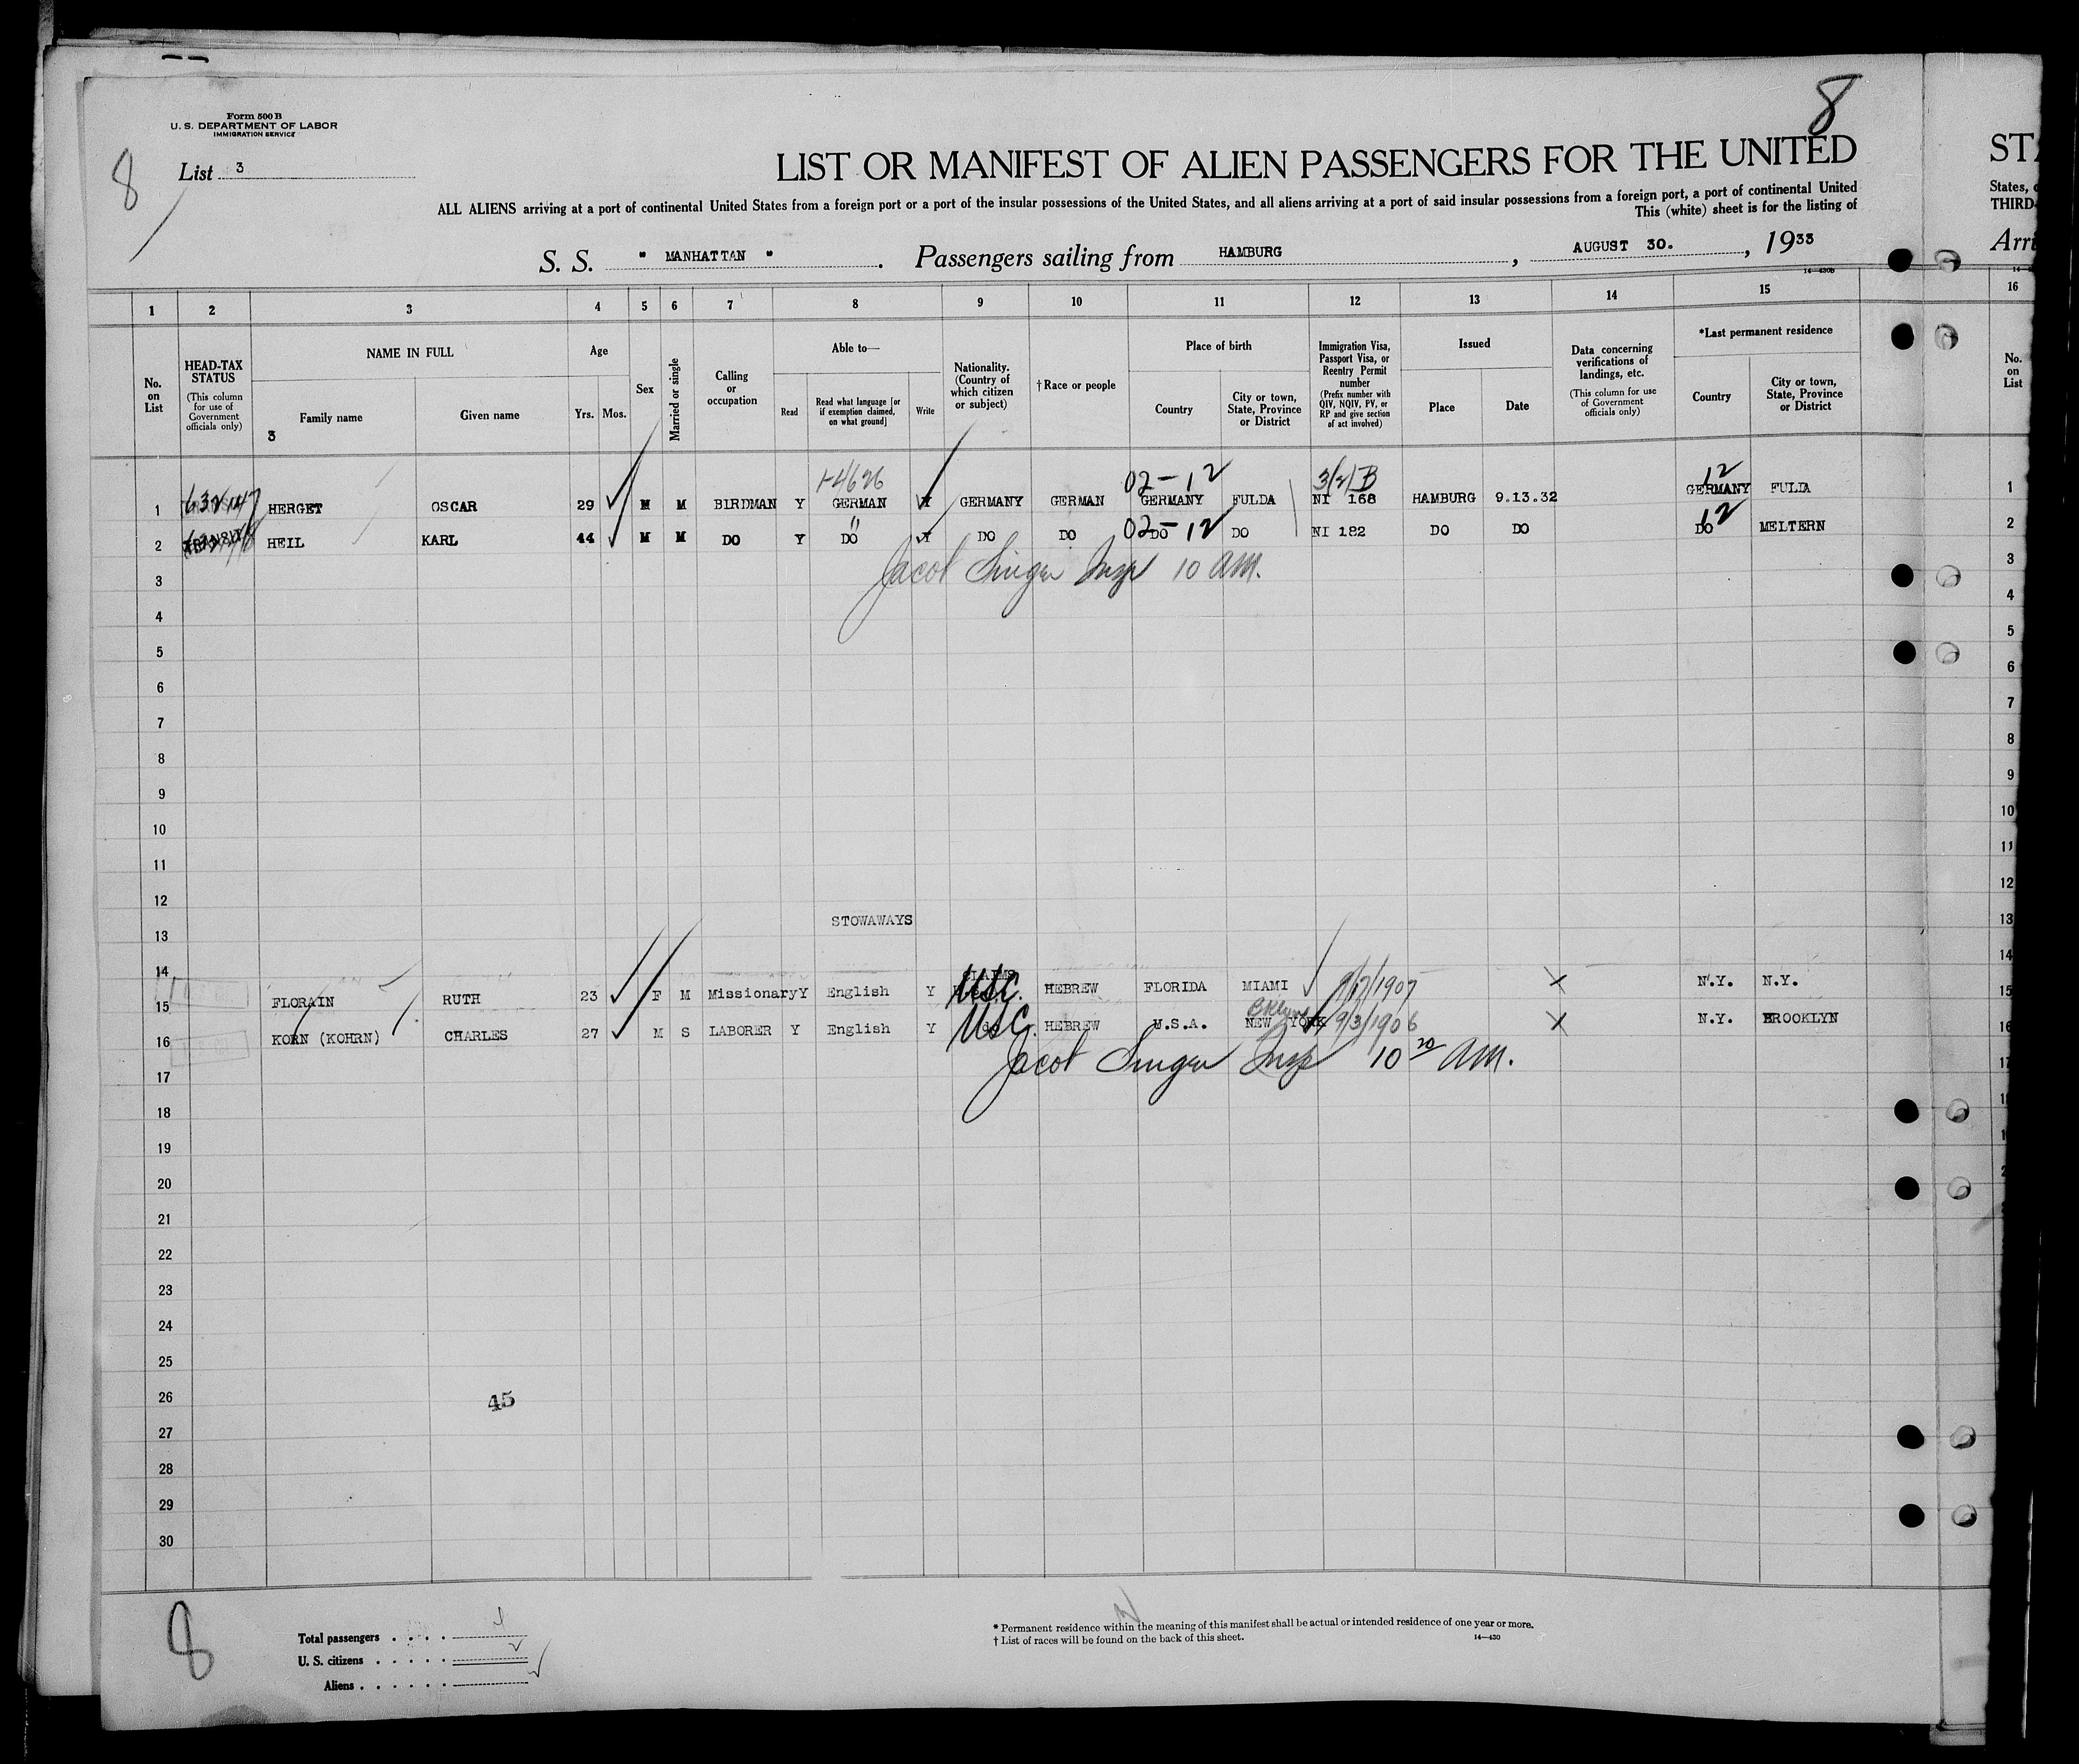 8
Form 500 B
U. S. DEPARTMENT OF LABOR
IMMIGRATION SERVICE
8
List 3
LIST OR MANIFEST OF ALIEN PASSENGERS FOR THE UNITED
STA
ALL ALIENS arriving at a port of continental United States from a foreign port or a port of the insular possessions of the United States, and all aliens arriving at a port of said insular possessions from a foreign port, a port of continental United
States,
This (white) sheet is for the listing of
THIRD-
S. S. " MANHATTAN " . Passengers sailing from HAMBURG , AUGUST 30. , 1933
Arri
14—430B
1 2 3 4 5 6 7 8 9 10 11 12 13 14 15 16
No. on List
HEAD-TAX STATUS
(This column for use of Government officials only)
NAME IN FULL
Family name
Given name
3
Age
Yrs. Mos.
Sex
Married or single
Calling or occupation
Able to—
Read
Read what language [or if exemption claimed, on what ground]
Write
Nationality. (Country of which citizen or subject)
† Race or people
Place of birth
Country
City or town, State, Province or District
Immigration Visa, Passport Visa, or Reentry Permit number
(Prefix number with QIV, NQIV, PV, or RP and give section of act involved)
Issued
Place
Date
Data concerning verifications of landings, etc.
(This column for use of Government officials only)
*Last permanent residence
Country
City or town, State, Province or District
No. on List
02-12 3/2/B 12
1 HERGET OSCAR 29 M M BIRDMAN Y GERMAN Y GERMANY GERMAN GERMANY FULDA NI 168 HAMBURG 9.13.32 GERMANY FULDA 1
02-12 12
2 TRANSIT HEIL KARL 44 M M DO Y DO Y DO DO DO DO NI 182 DO DO DO MELTERN 2
Jacob Singer Insp 10 AM.
3 3
4 4
5 5
6 6
7 7
8 8
9 9
10 10
11 11
12 12
STOWAWAYS
13 13
14 CLAIMS 14
15 FLORAIN RUTH 23 F M Missionary Y English Y USC. HEBREW FLORIDA MIAMI 9/17/1907 X N.Y. N.Y. 15
Bklyn
16 KORN (KOHRN) CHARLES 27 M S LABORER Y English Y USC. HEBREW U.S.A. NEW YORK 9/3/1906 X N.Y. BROOKLYN 16
Jacob Singer Insp 10 20 AM.
17 17
18
19
20
21
22
23
24
25
26 45
27
28
29
30
8
Total passengers
U. S. citizens
Aliens
* Permanent residence within the meaning of this manifest shall be actual or intended residence of one year or more.
† List of races will be found on the back of this sheet.
14—430